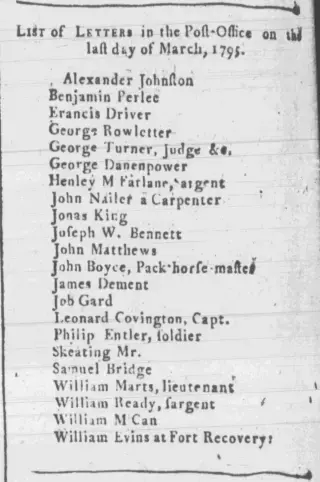 LIST of LETTERS in the Poſt-Office on the
laſt day of March, 1795.
Alexander Johnſton
Benjamin Perlee
Erancis Driver
George Rowletter
George Turner, Judge &c.
George Danenpower
Henley M Farlane, ſargent
John Nailer a Carpenter
Jonas King
Joſeph W. Bennett
John Matthews
John Boyce, Pack-horſe-maſter
James Dement
Job Gard
Leonard Covington, Capt.
Philip Entler, ſoldier
Skeating Mr.
Samuel Bridge
William Marts, lieutenant
William Ready, ſargent
William M Can
William Evins at Fort Recovery: